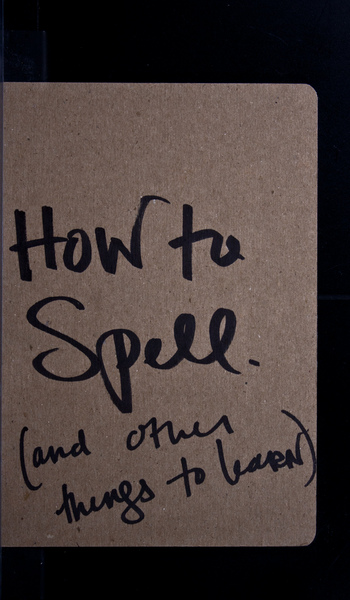 How to
Spell.
(and other
things to learn)